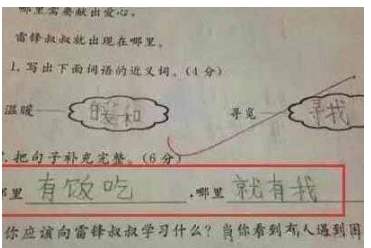 哪里需要献出爱心，
雷锋叔叔就出现在哪里。
1. 写出下面词语的近义词。(4分)
温暖 暖和 寻觅 寻找
.把句子补充完整。(6分)
哪里 有饭吃 ,哪里 就有我
你应该向雷锋叔叔学习什么？当你看到有人遇到困